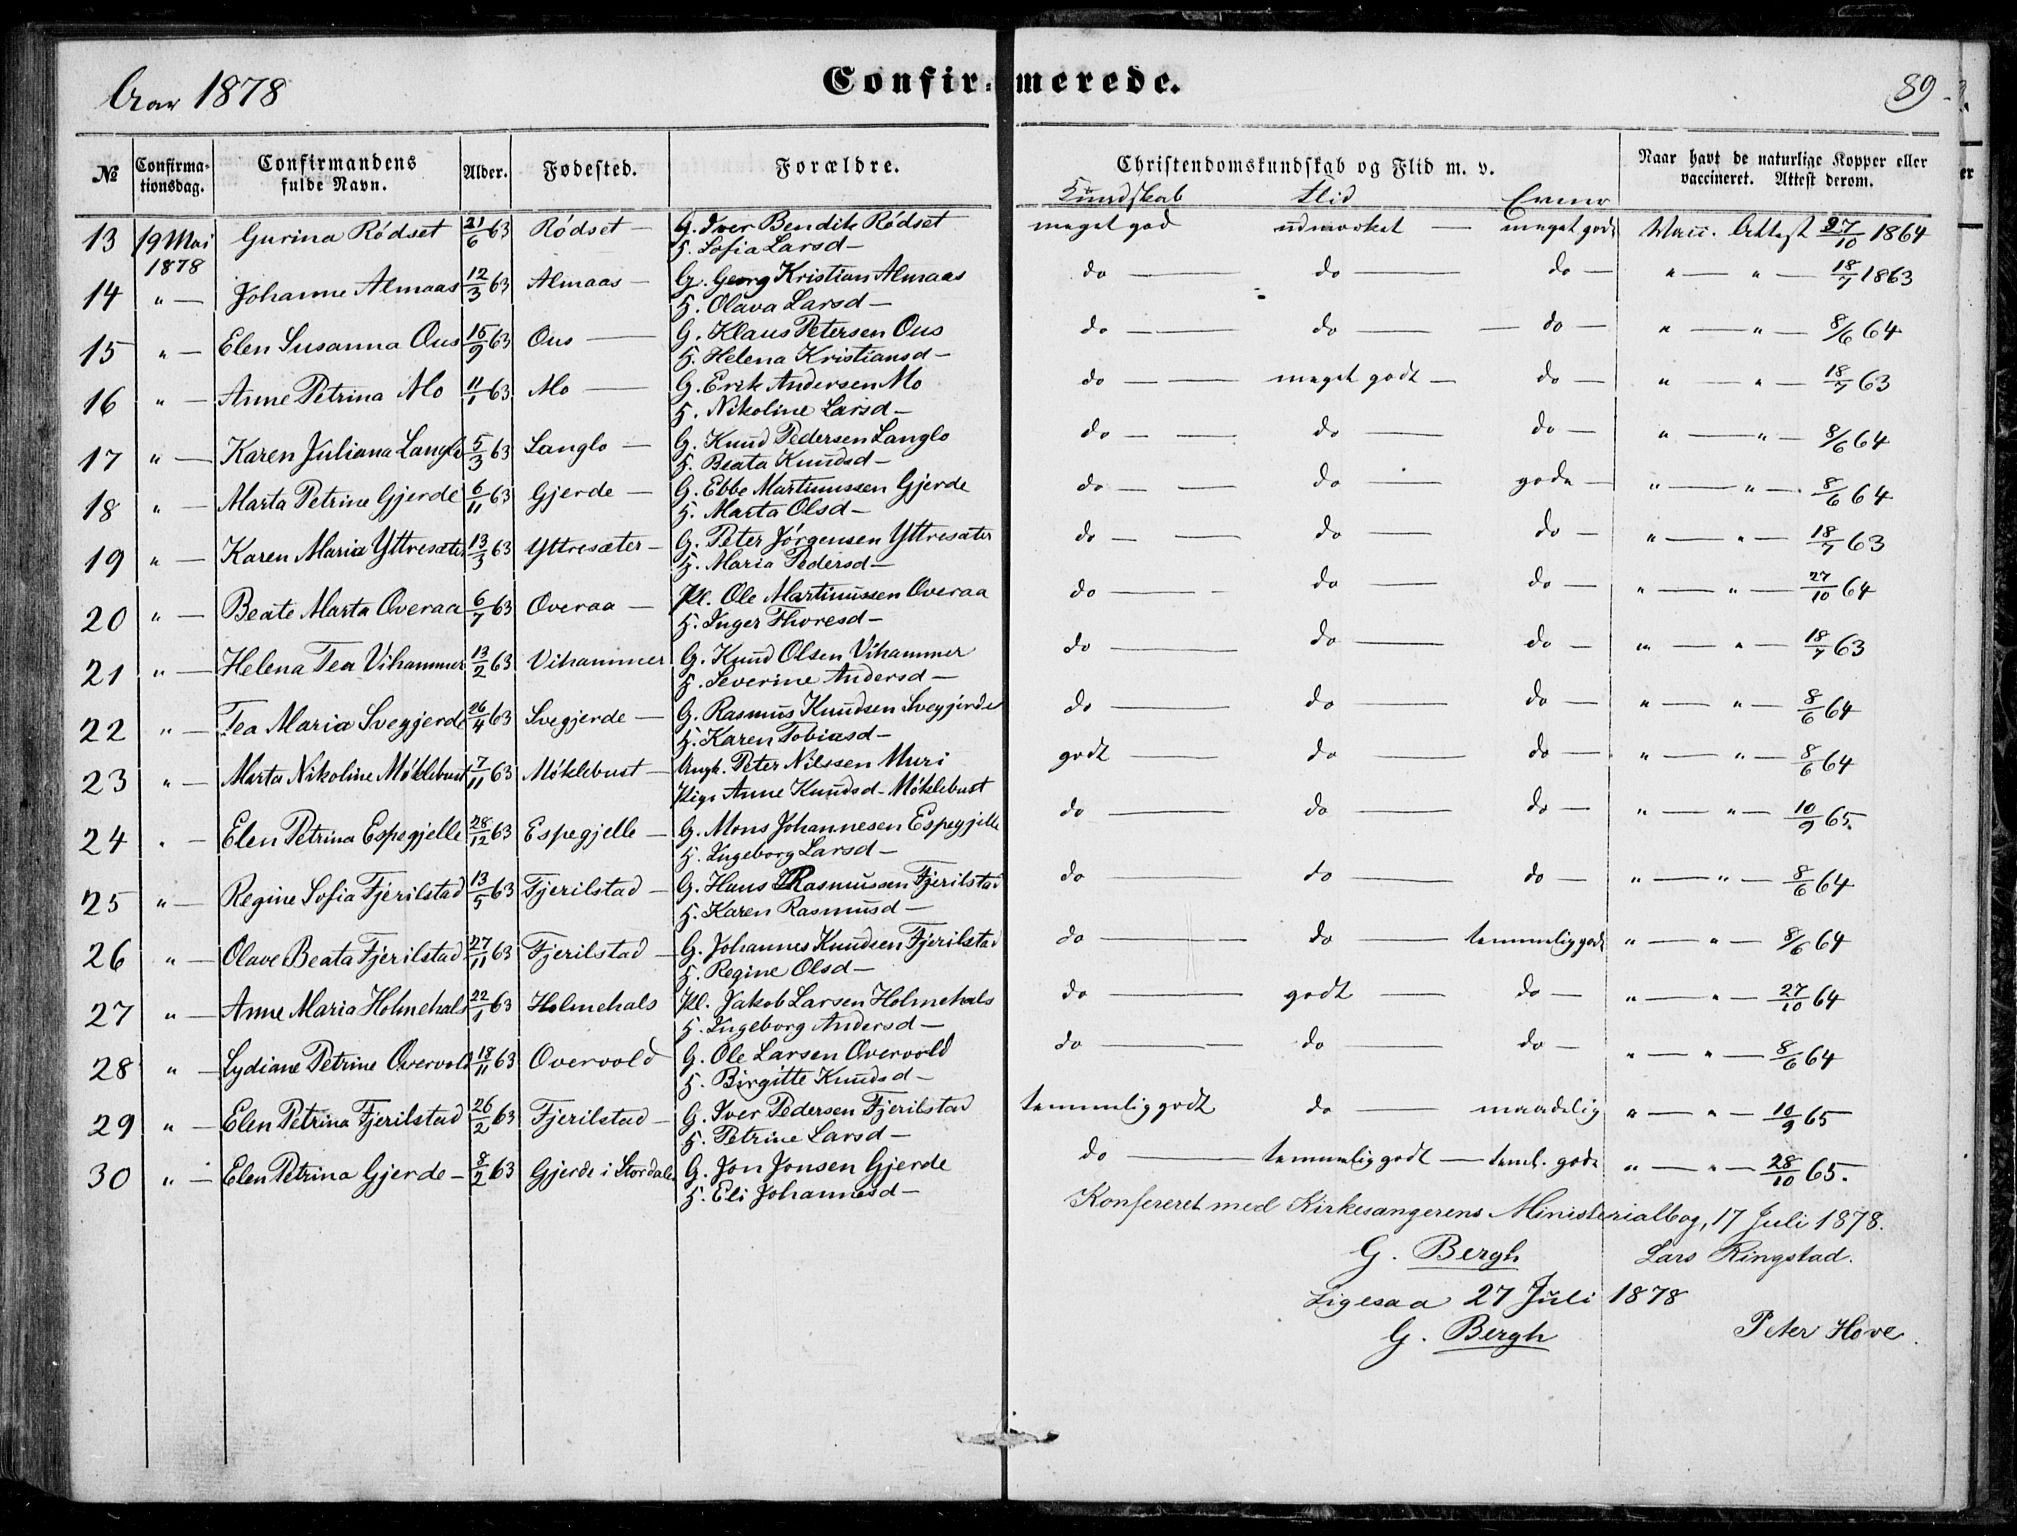 Aar 1878 Confirmerede. 89
№ Confirmationsdag. Confirmandens fulde Navn. Alder. Fødested. Forældre. Christendomskundskab og Flid m. v. Naar havt de naturlige Kopper eller vaccineret. Attest derom.
Kundskab Flid Evner
13 19 Mai 1878 Gurina Rödset 21/6 63 Rödset — G. Iver Bendik Rödset meget god udmærket — meget gode Vacc. Attest 27/10 1864
H. Sofia Larsd —
14 " — Johanne Almaas 12/3 63 Almaas — G. Georg Kristian Almaas do — do — do — " — " — 18/7 1863
H. Olava Larsd —
15 " — Elen Susanna Ous 15/9 63 Ous — G. Klaus Petersen Ous do — do — do — " — " — 8/6 64
H. Helena Kristiansd —
16 " — Anne Petrina Mo 11/1 63 Mo — G. Erik Andersen Mo do — meget godt — do — " — " — 18/7 63
H. Nikoline Larsd —
17 " — Karen Juliana Langlo 5/3 63 Langlo — G. Knud Pedersen Langlo do — do — do — " — " — 8/6 64
H. Beata Knudsd —
18 " — Marta Petrine Gjerde 6/11 63 Gjerde — G. Ebbe Martinussen Gjerde do — do — gode — " — " — 8/6 64
H. Marta Olsd —
19 " — Karen Maria Yttresæter 13/3 63 Yttresæter — G. Peter Jørgensen Yttresæter do — do — do — " — " — 18/7 63
H. Maria Pedersd —
20 " — Beate Marta Overaa 6/7 63 Overaa — Pl. Ole Martinussen Overaa do — do — do — " — " — 27/10 64
H. Inger Thoresd —
21 " — Helena Tea Vihammer 13/2 63 Vihammer G. Knud Olsen Vihammer do — do — do — " — " — 18/7 63
H. Severine Andersd —
22 " — Tea Maria Svegjerde 26/4 63 Svegjerde — G. Rasmus Knudsen Svegjerde do — do — do — " — " — 8/6 64
H. Karen Tobiasd —
23 " — Marta Nikoline Möklebust 7/11 63 Möklebust — Ungk. Peter Nilssen Muri godt — do — do — " — " — 8/6 64
Pige Anne Knudsd — Möklebust
24 " — Elen Petrina Espegjelle 28/12 63 Espegjelle — G. Mons Johannesen Espegjelle do — do — do — " — " — 10/9 65.
H. Ingeborg Larsd —
25 " — Regine Sofia Fjerilstad 13/5 63 Fjerilstad — G. Hans Rasmussen Fjerilstad do — do — do — " — " — 8/6 64
H. Karen Rasmusd —
26 " — Olave Beata Fjerilstad 27/11 63 Fjerilstad — G. Johannes Knudsen Fjerilstad do — do — temmelig gode " — " — 8/6 64
H. Regine Olsd —
27 " — Anne Maria Holmehals 22/1 63 Holmehals Pl. Jakob Larsen Holmehals do — godt — do — " — " — 27/10 64
H. Ingeborg Andersd —
28 " — Lydiane Petrine Overvold 18/11 63 Overvold G. Ole Larsen Overvold do — do — do — " — " — 8/6 64
H. Birgitte Knudsd —
29 " — Elen Petrina Fjerilstad 26/2 63 Fjerilstad — G. Iver Pedersen Fjerilstad temmelig godt do — maadelig " — " — 10/9 65
H. Petrine Larsd —
30 " — Elen Petrina Gjerde — 8/2 63 Gjerde i Stordalen G. Jon Jonsen Gjerde do — temmelig godt — teml. gode " — " — 28/10 65.
H. Eli Johannesd —
Konfereret med Kirkesangerens Ministerialbog, 17 Juli 1878.
G. Bergh Lars Ringstad.
Ligesaa 27 Juli 1878
G. Bergh Peter Hove.